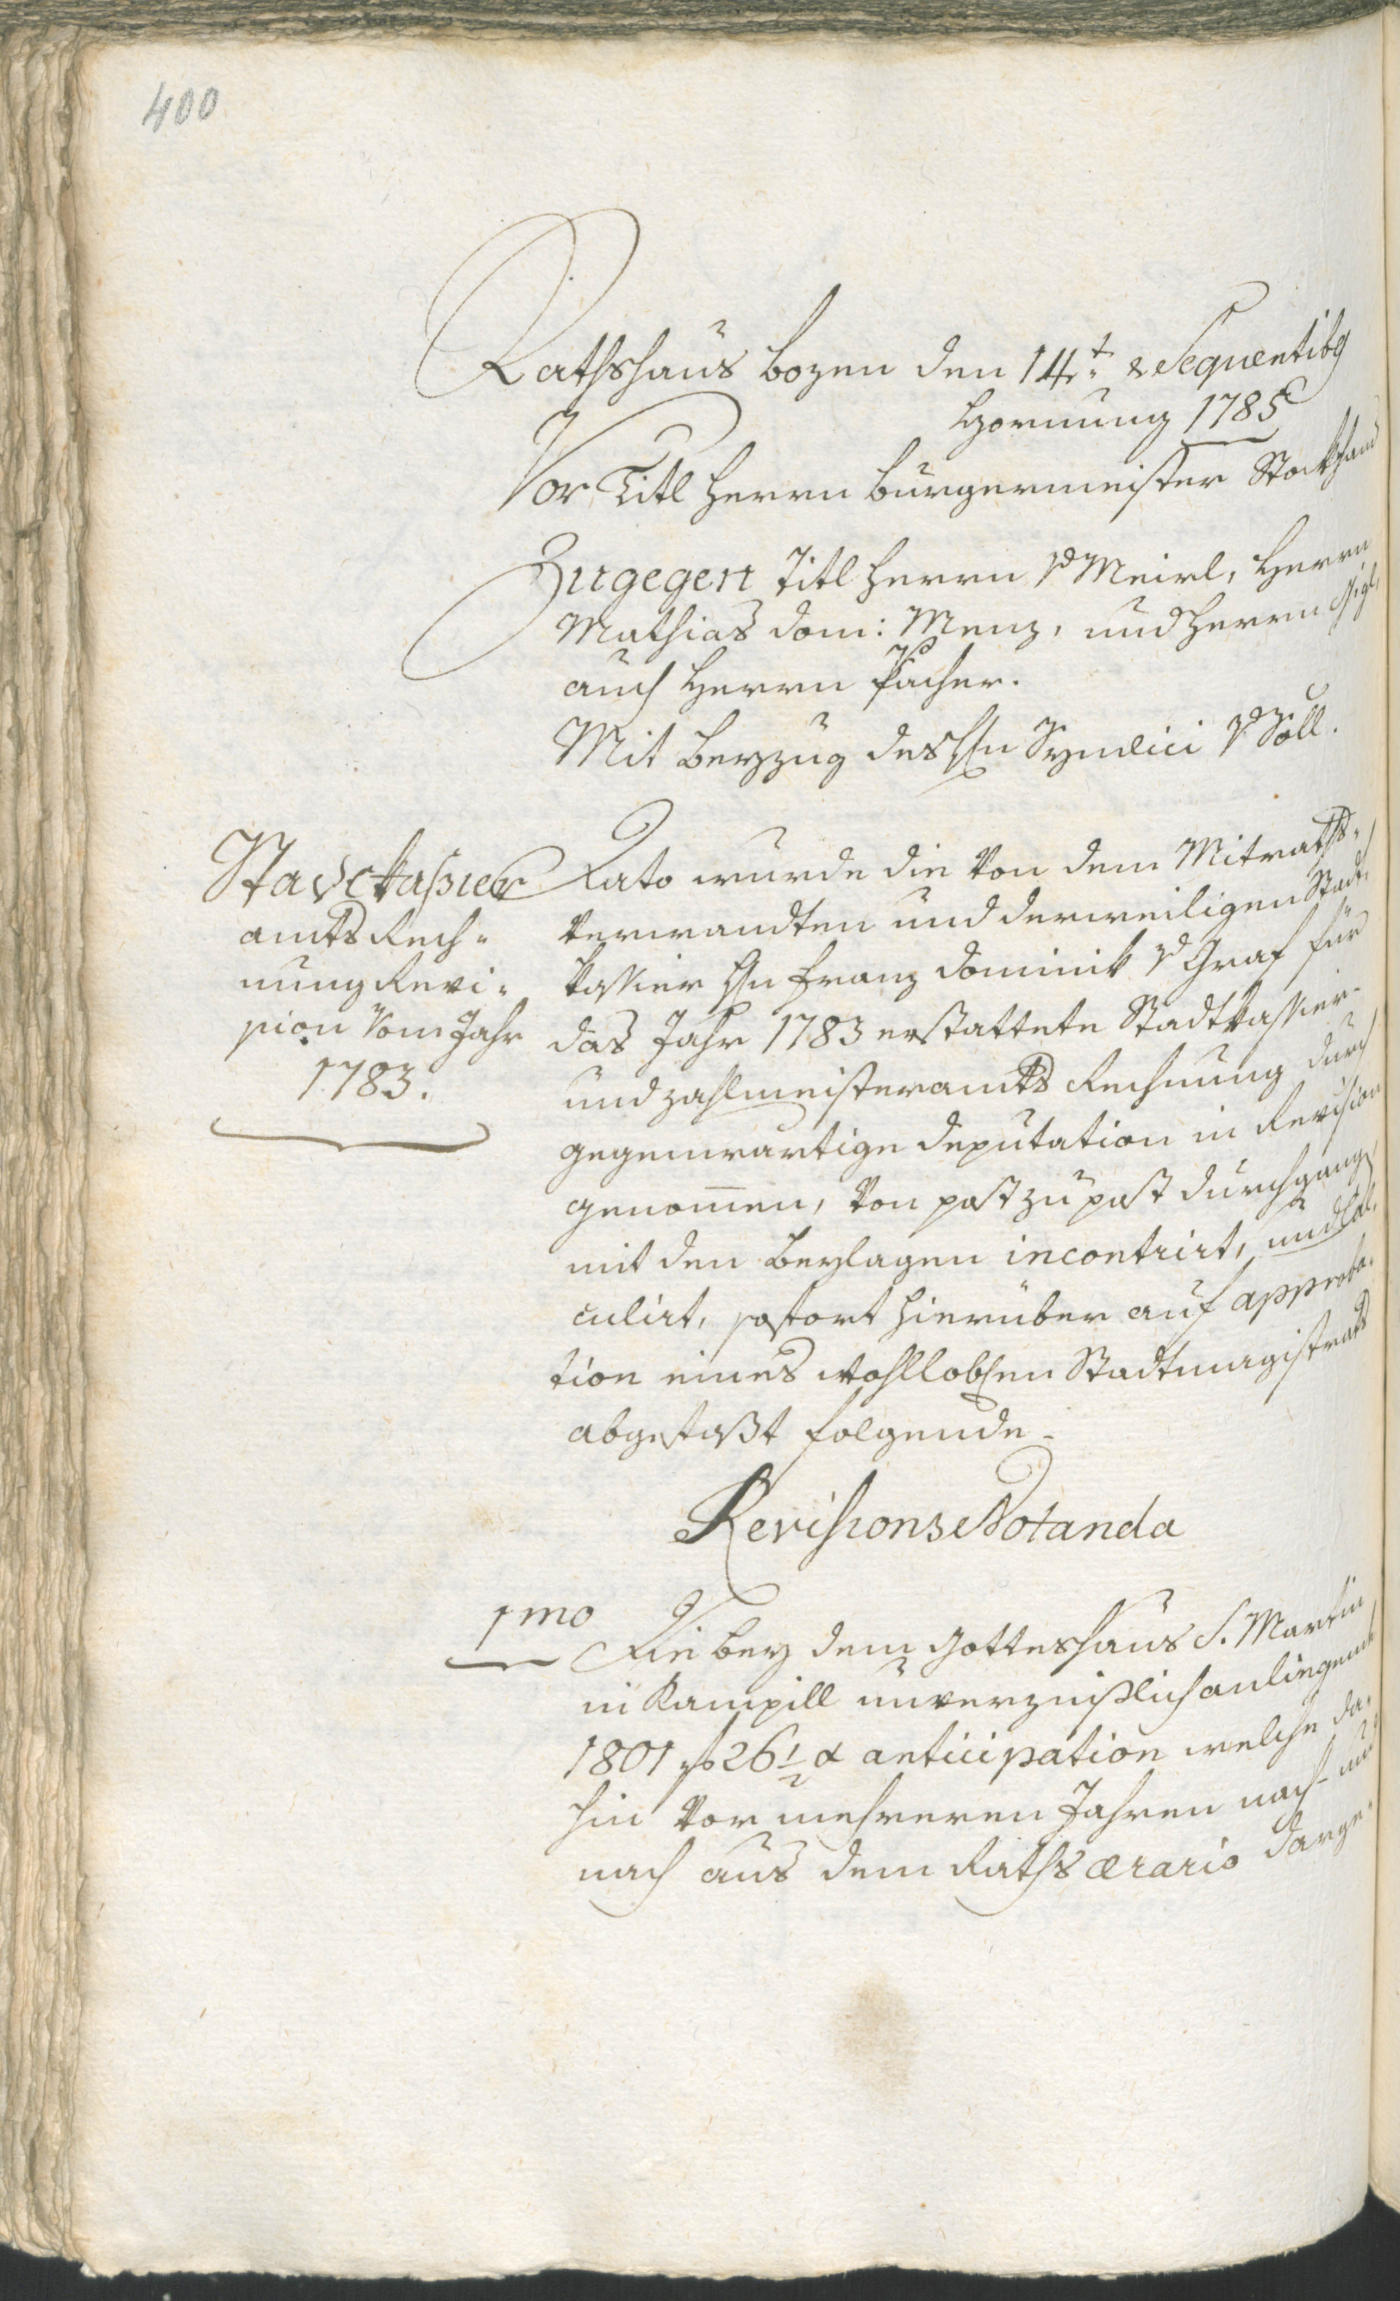 400
Rathshaus Bozen den 14t. & Sequentibg
Hornung 1785
Vor Titl Herrn Burgermeister Stockham
Zugegen Titl Herrn v Meirl, Herrn
Mathias Dom: Menz, und Herrn Gigl,
auch Herrn v Pacher.
Mit Beyzug des Hn Syndici v Söll.
Stadtkaßier
amts Rech=
nung Revi=
sion vom Jahr
1783.
Dato wurde die von dem Mitraths=
verwandten und derweiligen Stadt=
kassier Hn Franz Dominik v Graf für
das Jahr 1783 erstattete Stadtkassier-
und zahlmeisteramts Rechnung durch
gegenwärtige Deputation in Revision
genommen, von post zu post durchgang
mit den Beylagen incontrirt, und Cal=
culirt, sofort hierüber auf approba=
tion eines wohllobhen Stadtmagistrats
abgefaßt folgende-
Revisions Notanda
1mo
Die bey dem Gotteshaus S. Martin
in Kampill unverzinßlich anliegende
1801 f 26 1/2 x anticipation welche da=
hin vor mehreren Jahren nach- und
nach aus dem Raths ærario darge=